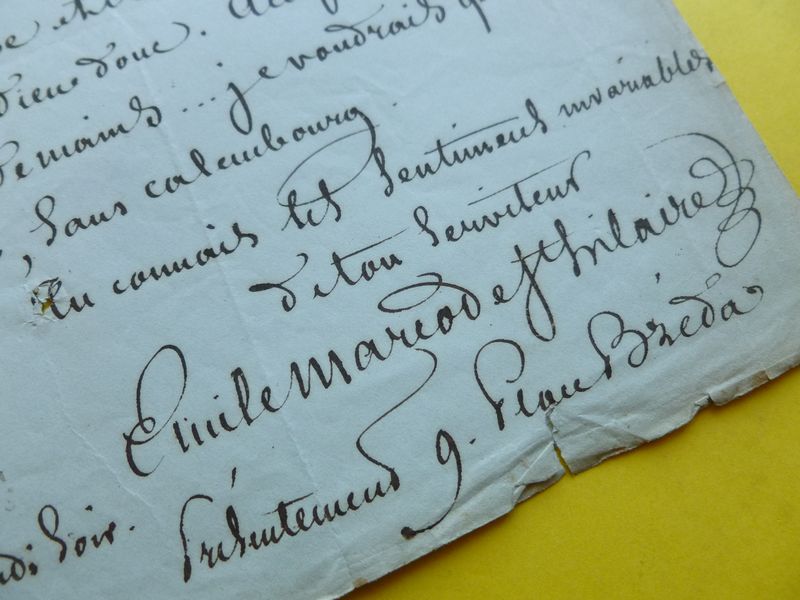 Dieu donc.
demains... je voudrais
, sans calembourg.
tu connais les sentimens invariables
de ton serviteur
Emile Marco de St hilaire
di soir. Présentement 9. Place Bréda